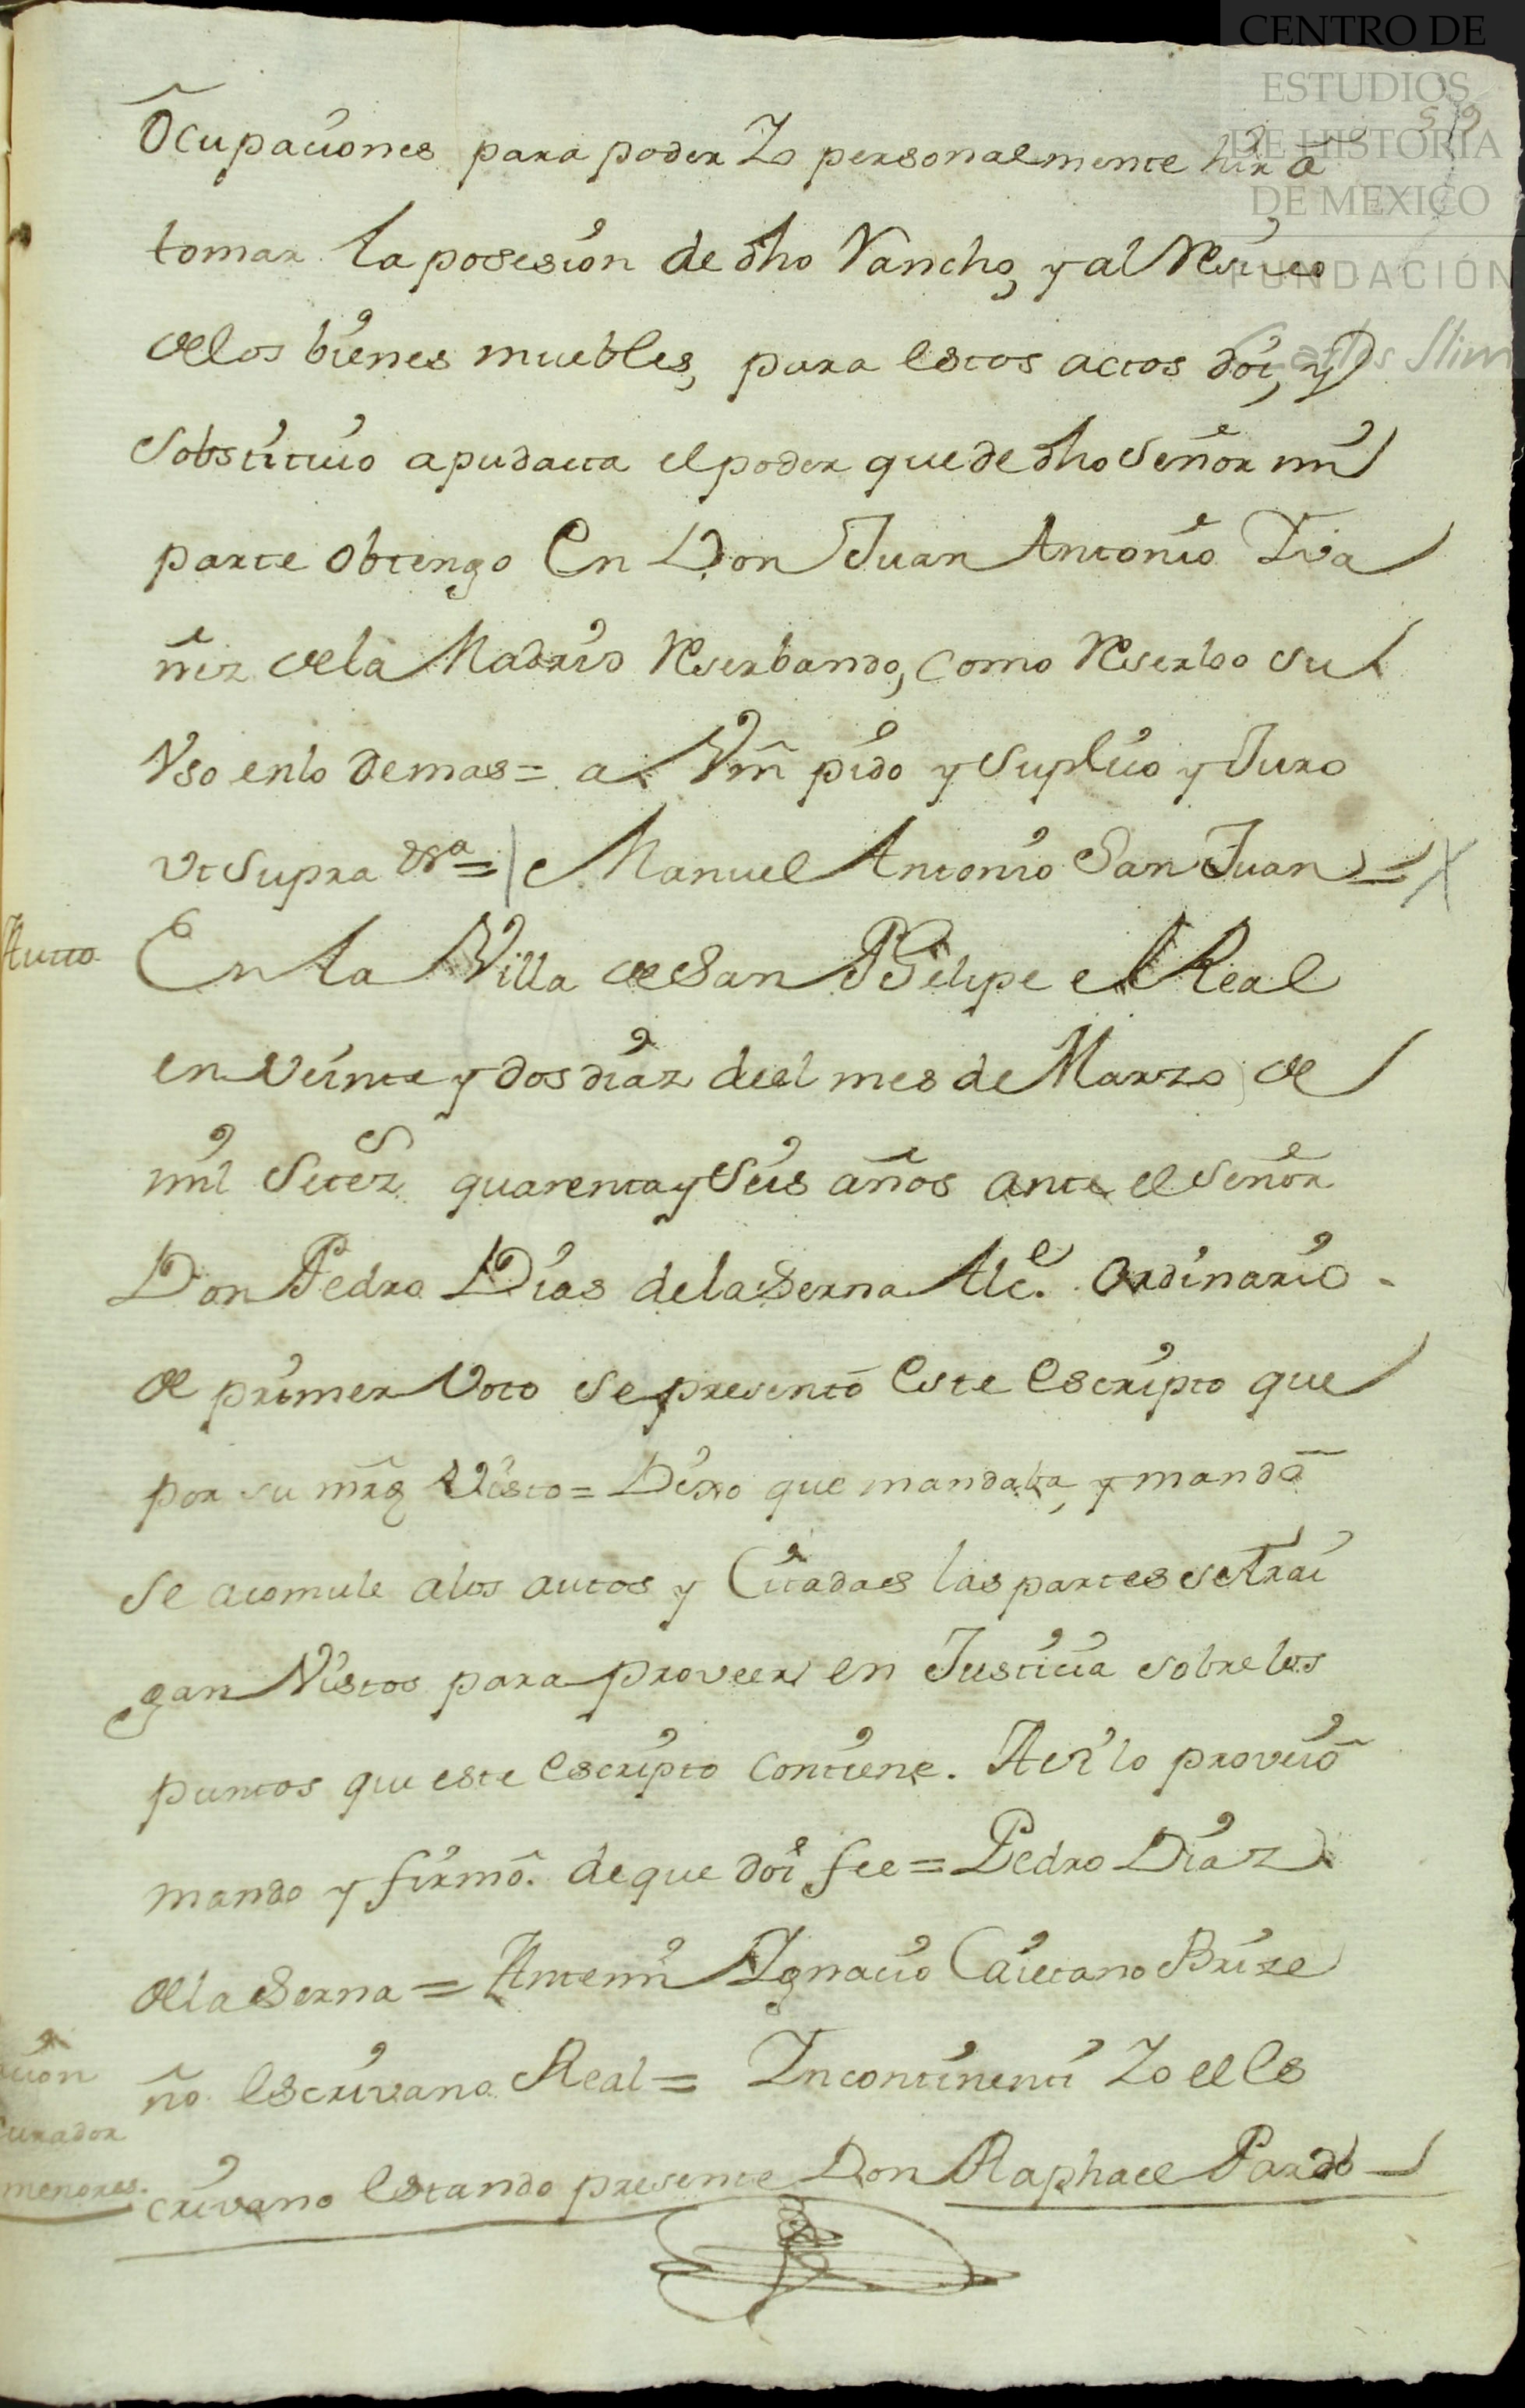 CENTRO DE
ESTUDIOS
DE HISTORIA
DE MEXICO
FUNDACIÓN
Carlos Slim
Ocupaciones para poder Yo personalmente hir â
tomar la posesion de dho Rancho, y al Resivo
de los bienes muebles, para estos actos doi, y
sobstituio apudacta el poder que de dho señor mi
parte obtengo En Don Juan Antonio Iva
ñez de la Madrid Reserbando, como Reserbo su
Vso en lo demas = a Vm̃ pido y suplico y Juro
Vt supra &ra = Manuel Antonio San Juan =
Autto
En la Villa de San Phelipe el Real
en veinte y dos diaz deel mes de Marzo de
mil setez quarenta y seis años ante el señor
Don Pedro Dias de la Serna Alc.e Ordinario
de primer Voto se presentó este escripto que
por su mrd Visto = Dixo que mandaba, y mandó
se acomule a los autos y Citadas las partes se trai
gan Vistos para proveer en Justicia sobre los
puntos que este escripto contiene. Assi lo proveió
mando y firmó. de que doi fee = Pedro Diaz
de la Serna = Antemi Ygnacio Caietano Brize
ño escrivano Real = Incontinenti Yo el es
curador
menores.
crivano estando presente Don Raphael Pardo